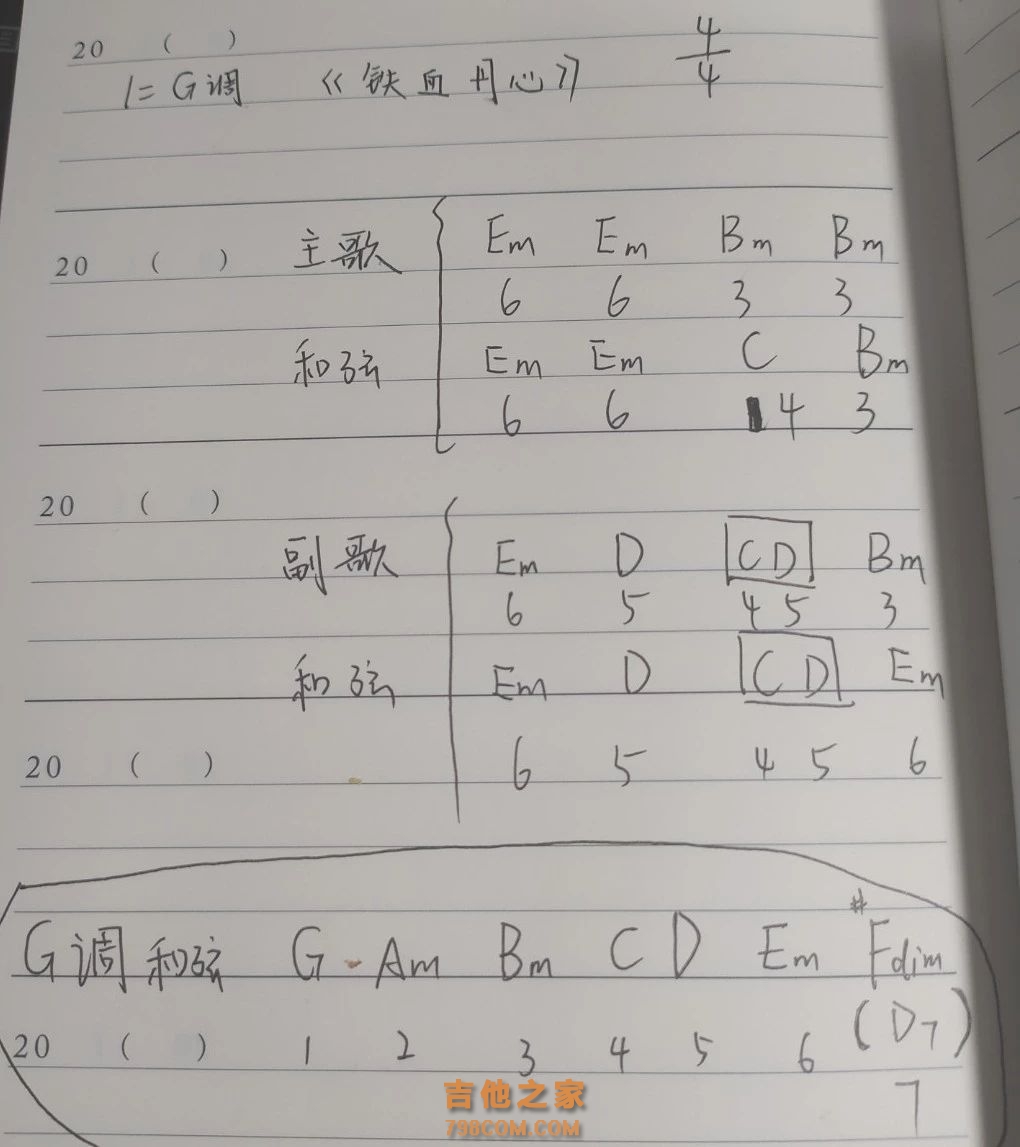 20 ( ) 4/4
1=G调 《铁血丹心》
20 ( ) 主歌 Em Em Bm Bm
6 6 3 3
和弦 Em Em C Bm
6 6 4 3
20 ( )
副歌 Em D CD Bm
6 5 4 5 3
和弦 Em D CD Em
20 ( ) 6 5 4 5 6
G调和弦 G - Am Bm C D Em #Fdim
(D7)
20 ( ) 1 2 3 4 5 6 7
吉他之家
798COM.COM